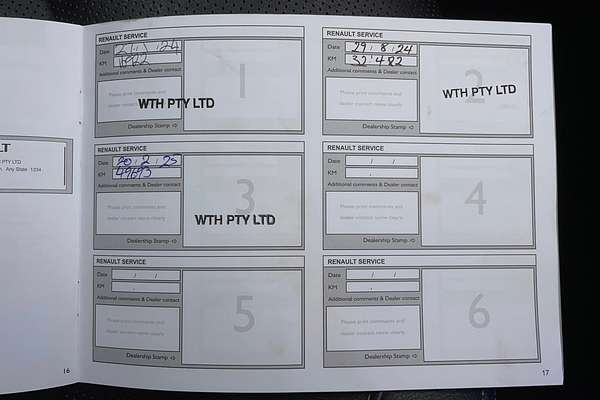 LT
PTY LTD
Any State 1234
16
RENAULT SERVICE
Date
KM
Additional comments & Dealer contact
Please print comments and
dealer contact name clearly
Dealership Stamp
1
WTH PTY LTD
RENAULT SERVICE
Date 29 / 8 / 24
KM 32 482
Additional comments & Dealer contact
Please print comments and
dealer contact name clearly
Dealership Stamp
2
WTH PTY LTD
RENAULT SERVICE
Date 20 / 2 / 25
KM 49693
Additional comments & Dealer contact
Please print comments and
dealer contact name clearly
Dealership Stamp
3
WTH PTY LTD
RENAULT SERVICE
Date / /
KM .
Additional comments & Dealer contact
Please print comments and
dealer contact name clearly
Dealership Stamp
4
RENAULT SERVICE
Date / /
KM .
Additional comments & Dealer contact
Please print comments and
dealer contact name clearly
Dealership Stamp
5
RENAULT SERVICE
Date / /
KM .
Additional comments & Dealer contact
Please print comments and
dealer contact name clearly
Dealership Stamp
6
17